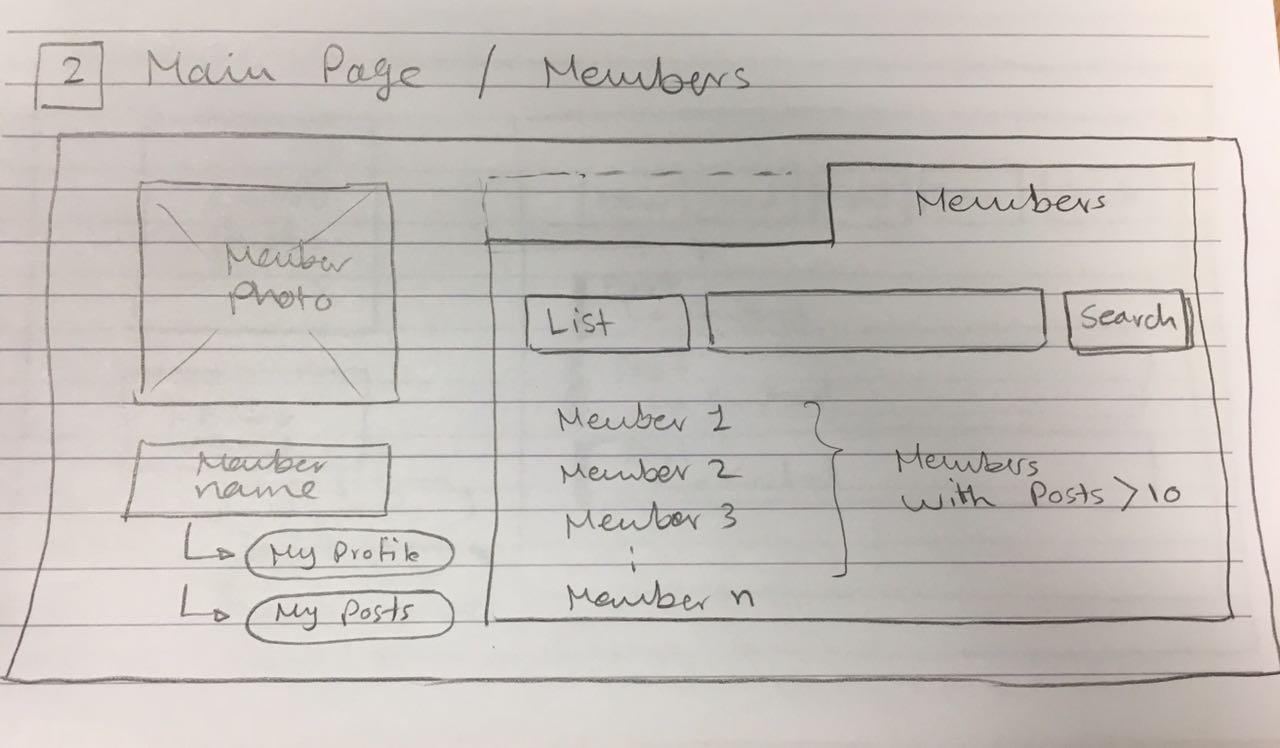 2 Main Page / Members
Member
photo
Member
name
My Profile
My Posts
Members
List
Search
Member 1
Member 2
Member 3
Member n
Members
with Posts > 10